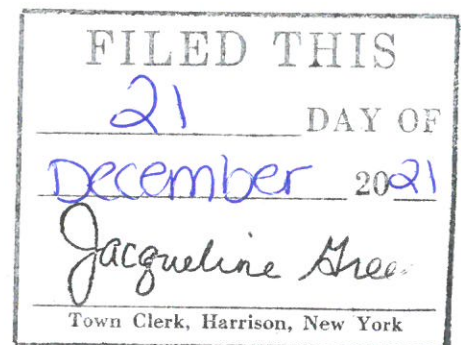 FILED THIS
21 DAY OF
December 2021
Jacqueline Gree
Town Clerk, Harrison, New York